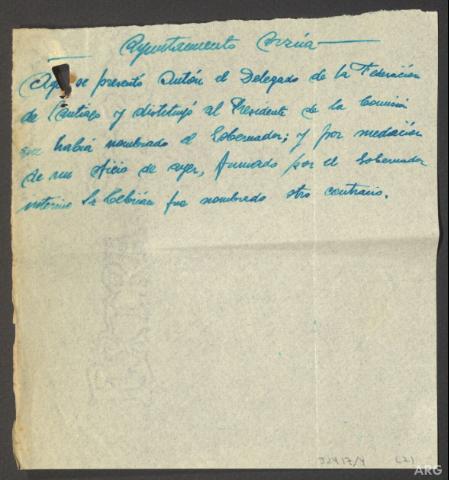 Ayuntamiento Arzúa
Aquí se presentó Antón el Delegado de la Federación
de Santiago y distituyó al Presidente de la Comisión
que había nombrado el Gobernador; y por mediación
de un oficio de ayer, firmado por el Gobernador
interino Sr Cebrián fue nombrado otro contrario.
ARG